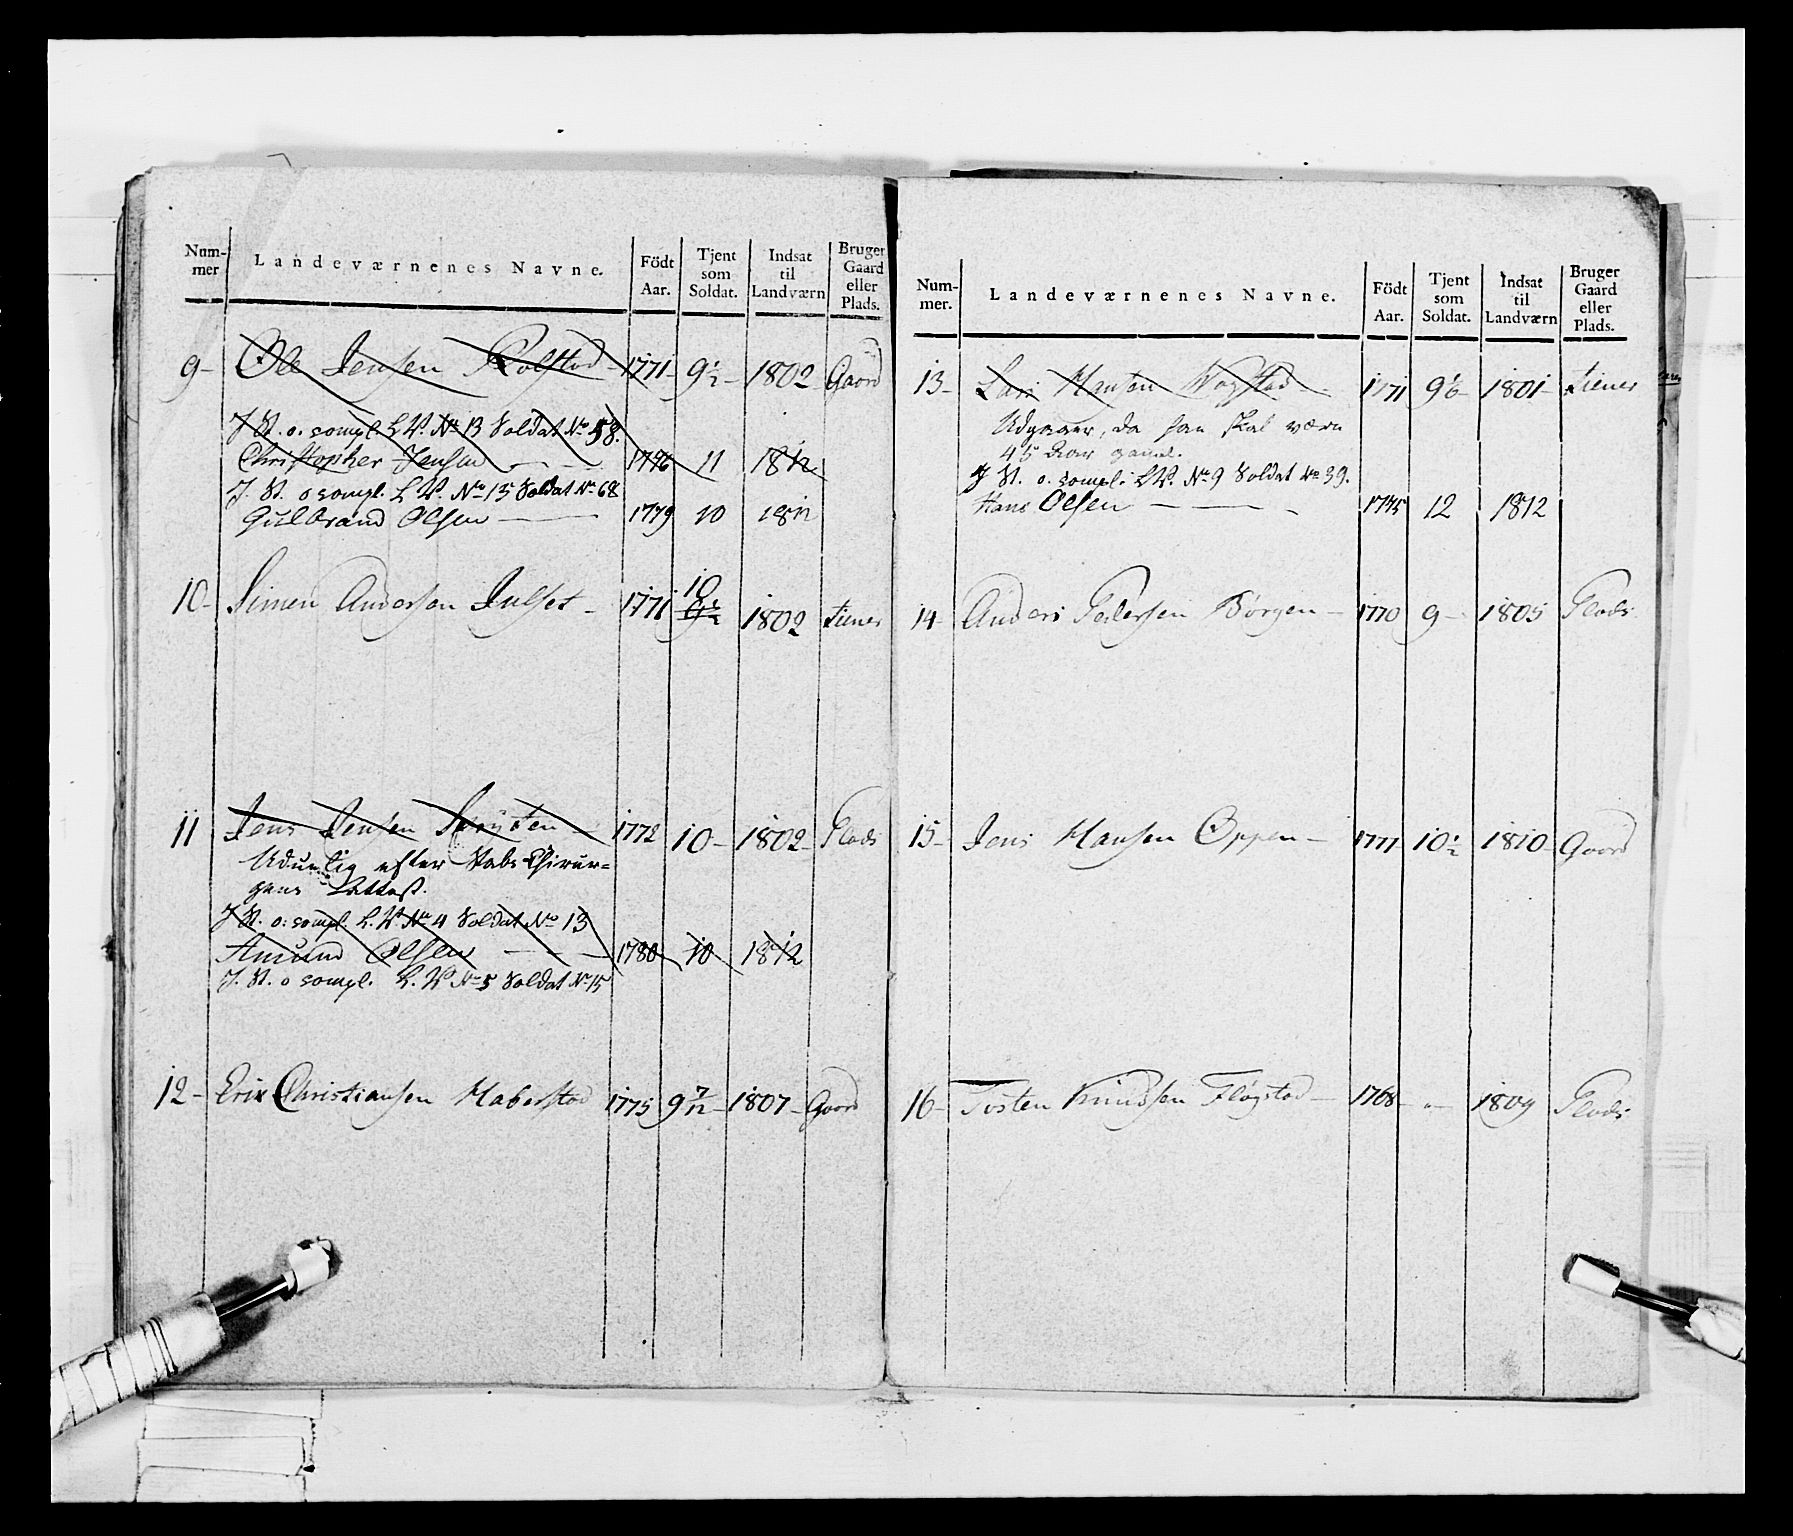 Num-
mer
Landeværnenes Navne.
Födt
Aar.
Tjent
som
Soldat.
Indsat
til
Landværn
Bruger
Gaard
eller
Plads.
9- Ole Jensen Rolstad - 1771- 9½- 1802 Gaard
J St. o. compl. L.V. No 13 Soldat No 58.
Christopher Jensen 1776 11 1812
J. St. o compl. L.V. No 15 Soldat No 68
Gulbrand Olsen 1779 10 1812
10- Simen Andersen Julset - 1771 10 9½ 1802 tiener
11 Jens Jensen 1772 10- 1802- Plads
Uduelig efter Stabs-Chirur-
gens Attest.
J St. o: compl. L.V. No 4 Soldat No 13
Amund Olsen 1780 10 1812
J. St. o compl. L.V. No 5 Soldat No 15
12- Erik Christiansen Haberstad 1775 9 7/12- 1807- Gaard
Num-
mer.
Landeværnenes Navne.
Födt
Aar.
Tjent
som
Soldat.
Indsat
til
Landværn
Bruger
Gaard
eller
Plads.
13- Lars Hansen 1771 9⅙- 1801- tiener
Udgaaer, da han skal være
45 Aar gammel.
J St. o. compl. L.V. No 9 Soldat No 39.
Hans Olsen 1775 12 1812
14- Anders Pedersen Börgen- 1770 9- 1805 Plads
15- Jens Hansen Oppen- 1771 10½ 1810- Gaard
16- Tosten Knudsen Flögstad- 1768- "- 1809 Plads